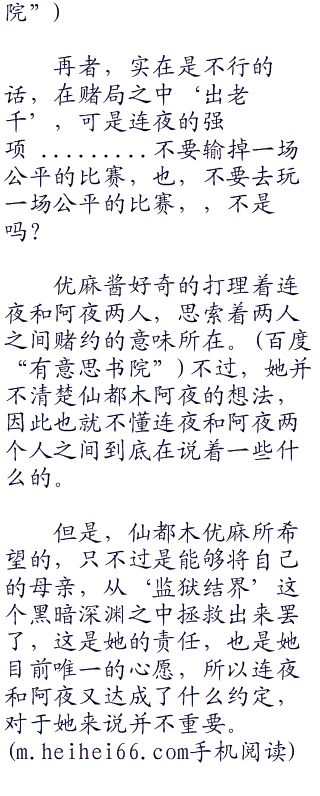 院”)
再者，实在是不行的
话，在赌局之中‘出老
千’，可是连夜的强
项 .........不要输掉一场
公平的比赛，也，不要去玩
一场公平的比赛，，不是
吗？
优麻酱好奇的打理着连
夜和阿夜两人，思索着两人
之间赌约的意味所在。(百度
“有意思书院”)不过，她并
不清楚仙都木阿夜的想法，
因此也就不懂连夜和阿夜两
个人之间到底在说着一些什
么的。
但是，仙都木优麻所希
望的，只不过是能够将自己
的母亲，从‘监狱结界’这
个黑暗深渊之中拯救出来罢
了，这是她的责任，也是她
目前唯一的心愿，所以连夜
和阿夜又达成了什么约定，
对于她来说并不重要。
(m.heihei66.com手机阅读)